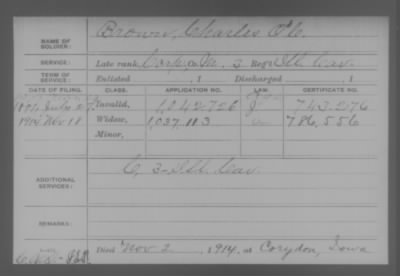 NAME OF SOLDIER: Brown, Charles O'C.
SERVICE: Late rank, Corp. Co. M, 3 Reg't Ill. Cav.
TERM OF SERVICE: Enlisted , 1 Discharged , 1
DATE OF FILING. CLASS. APPLICATION NO. LAW. CERTIFICATE NO.
July 27 Invalid, 1,042,726 J 743,276
1914 Nov 18 Widow, 1,037,113 786,556
Minor,
ADDITIONAL SERVICES: C, 3 Ill. Cav.
REMARKS:
Died Nov 2, 1914, at Corydon, Iowa